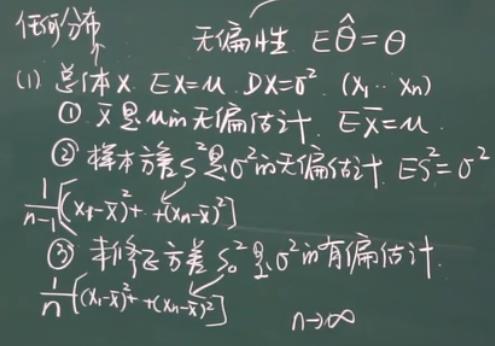 任何分布
无偏性 Eθ̂=θ
(1) 总体X. EX=μ. DX=σ². (X₁…Xn)
① X̄是μ的无偏估计. EX̄=μ.
② 样本方差S²是σ²的无偏估计. ES²=σ²
1/(n-1)[(X₁-X̄)²+…+(Xn-X̄)²]
③ 未修正方差S₀²是σ²的有偏估计.
1/n[(X₁-X̄)²+…+(Xn-X̄)²]
n→∞